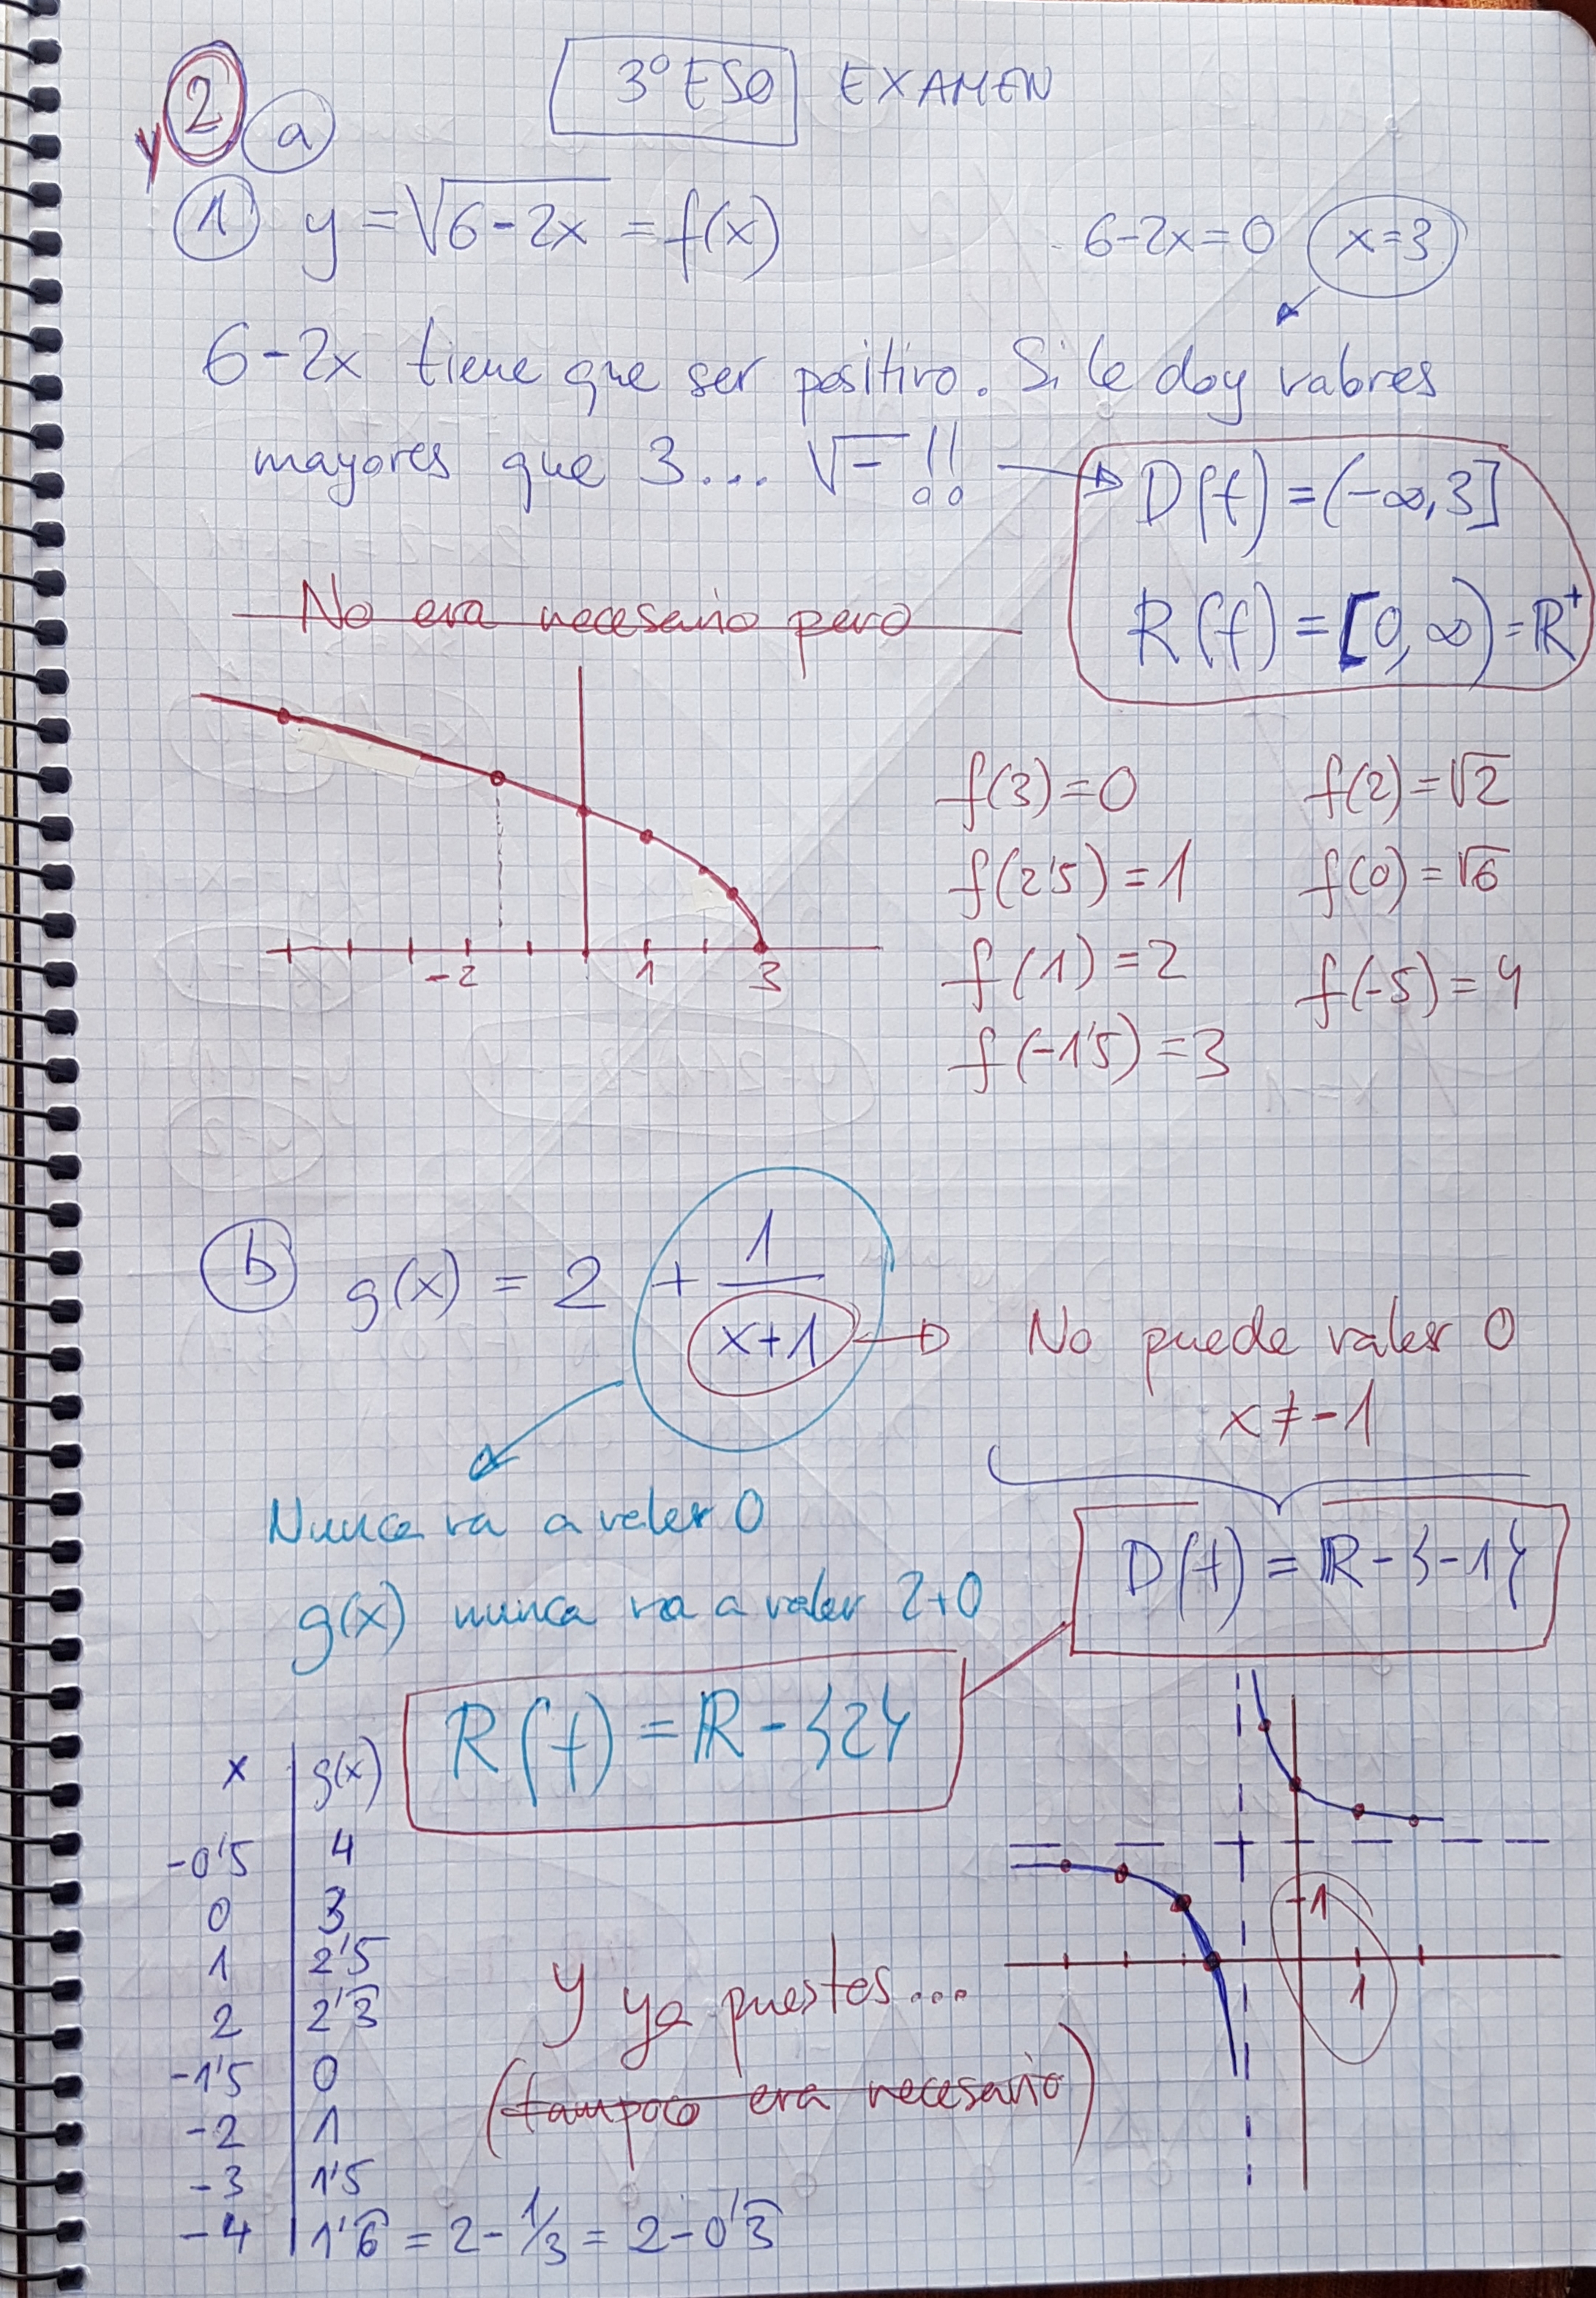 3º ESO EXAMEN
y 2 a
1 y = √6-2x = f(x)
6-2x=0 x=3
6-2x tiene que ser positivo. Si le doy valores
mayores que 3... √- !!
D(f) = (-∞,3]
R(f) = [0,∞) = ℝ⁺
No era necesario pero
-2 1 3
f(3)=0 f(2)=√2
f(2'5)=1 f(0)=√6
f(1)=2 f(-5)=4
f(-1'5)=3
b g(x) = 2 + 1/(x+1)
No puede valer 0
x≠-1
Nunca va a valer 0
g(x) nunca va a valer 2+0
D(f) = ℝ-{-1}
R(f) = ℝ-{2}
x | g(x)
-0'5 | 4
0 | 3
1 | 2'5
2 | 2'3̂
-1'5 | 0
-2 | 1
-3 | 1'5
-4 | 1'6̂ = 2-1/3 = 2-0'3̂
Y ya puestos...
(tampoco era necesario)
1
1